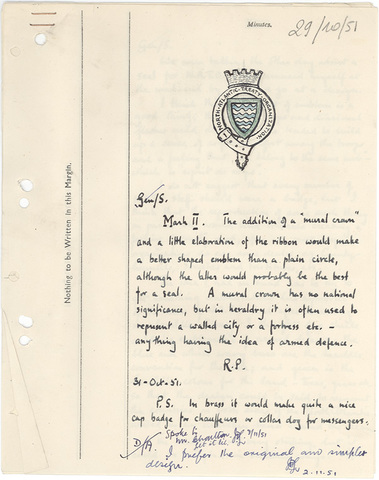 Minutes.
29/10/51
NORTH·ATLANTIC·TREATY·ORGANIZATION.
Nothing to be Written in this Margin.
Gen/S.
Mark II. The addition of a "mural crown"
and a little elaboration of the ribbon would make
a better shaped emblem than a plain circle,
although the latter would probably be the best
for a seal. A mural crown has no national
significance, but in heraldry it is often used to
represent a walled city or a fortress etc. –
anything having the idea of armed defence.
R.P.
31-Oct-51.
P.S. In brass it would make quite a nice
cap badge for chauffeurs or collar dog for messengers.
Spoke to
Mr.
I prefer the original and simpler
design.
2.11.51